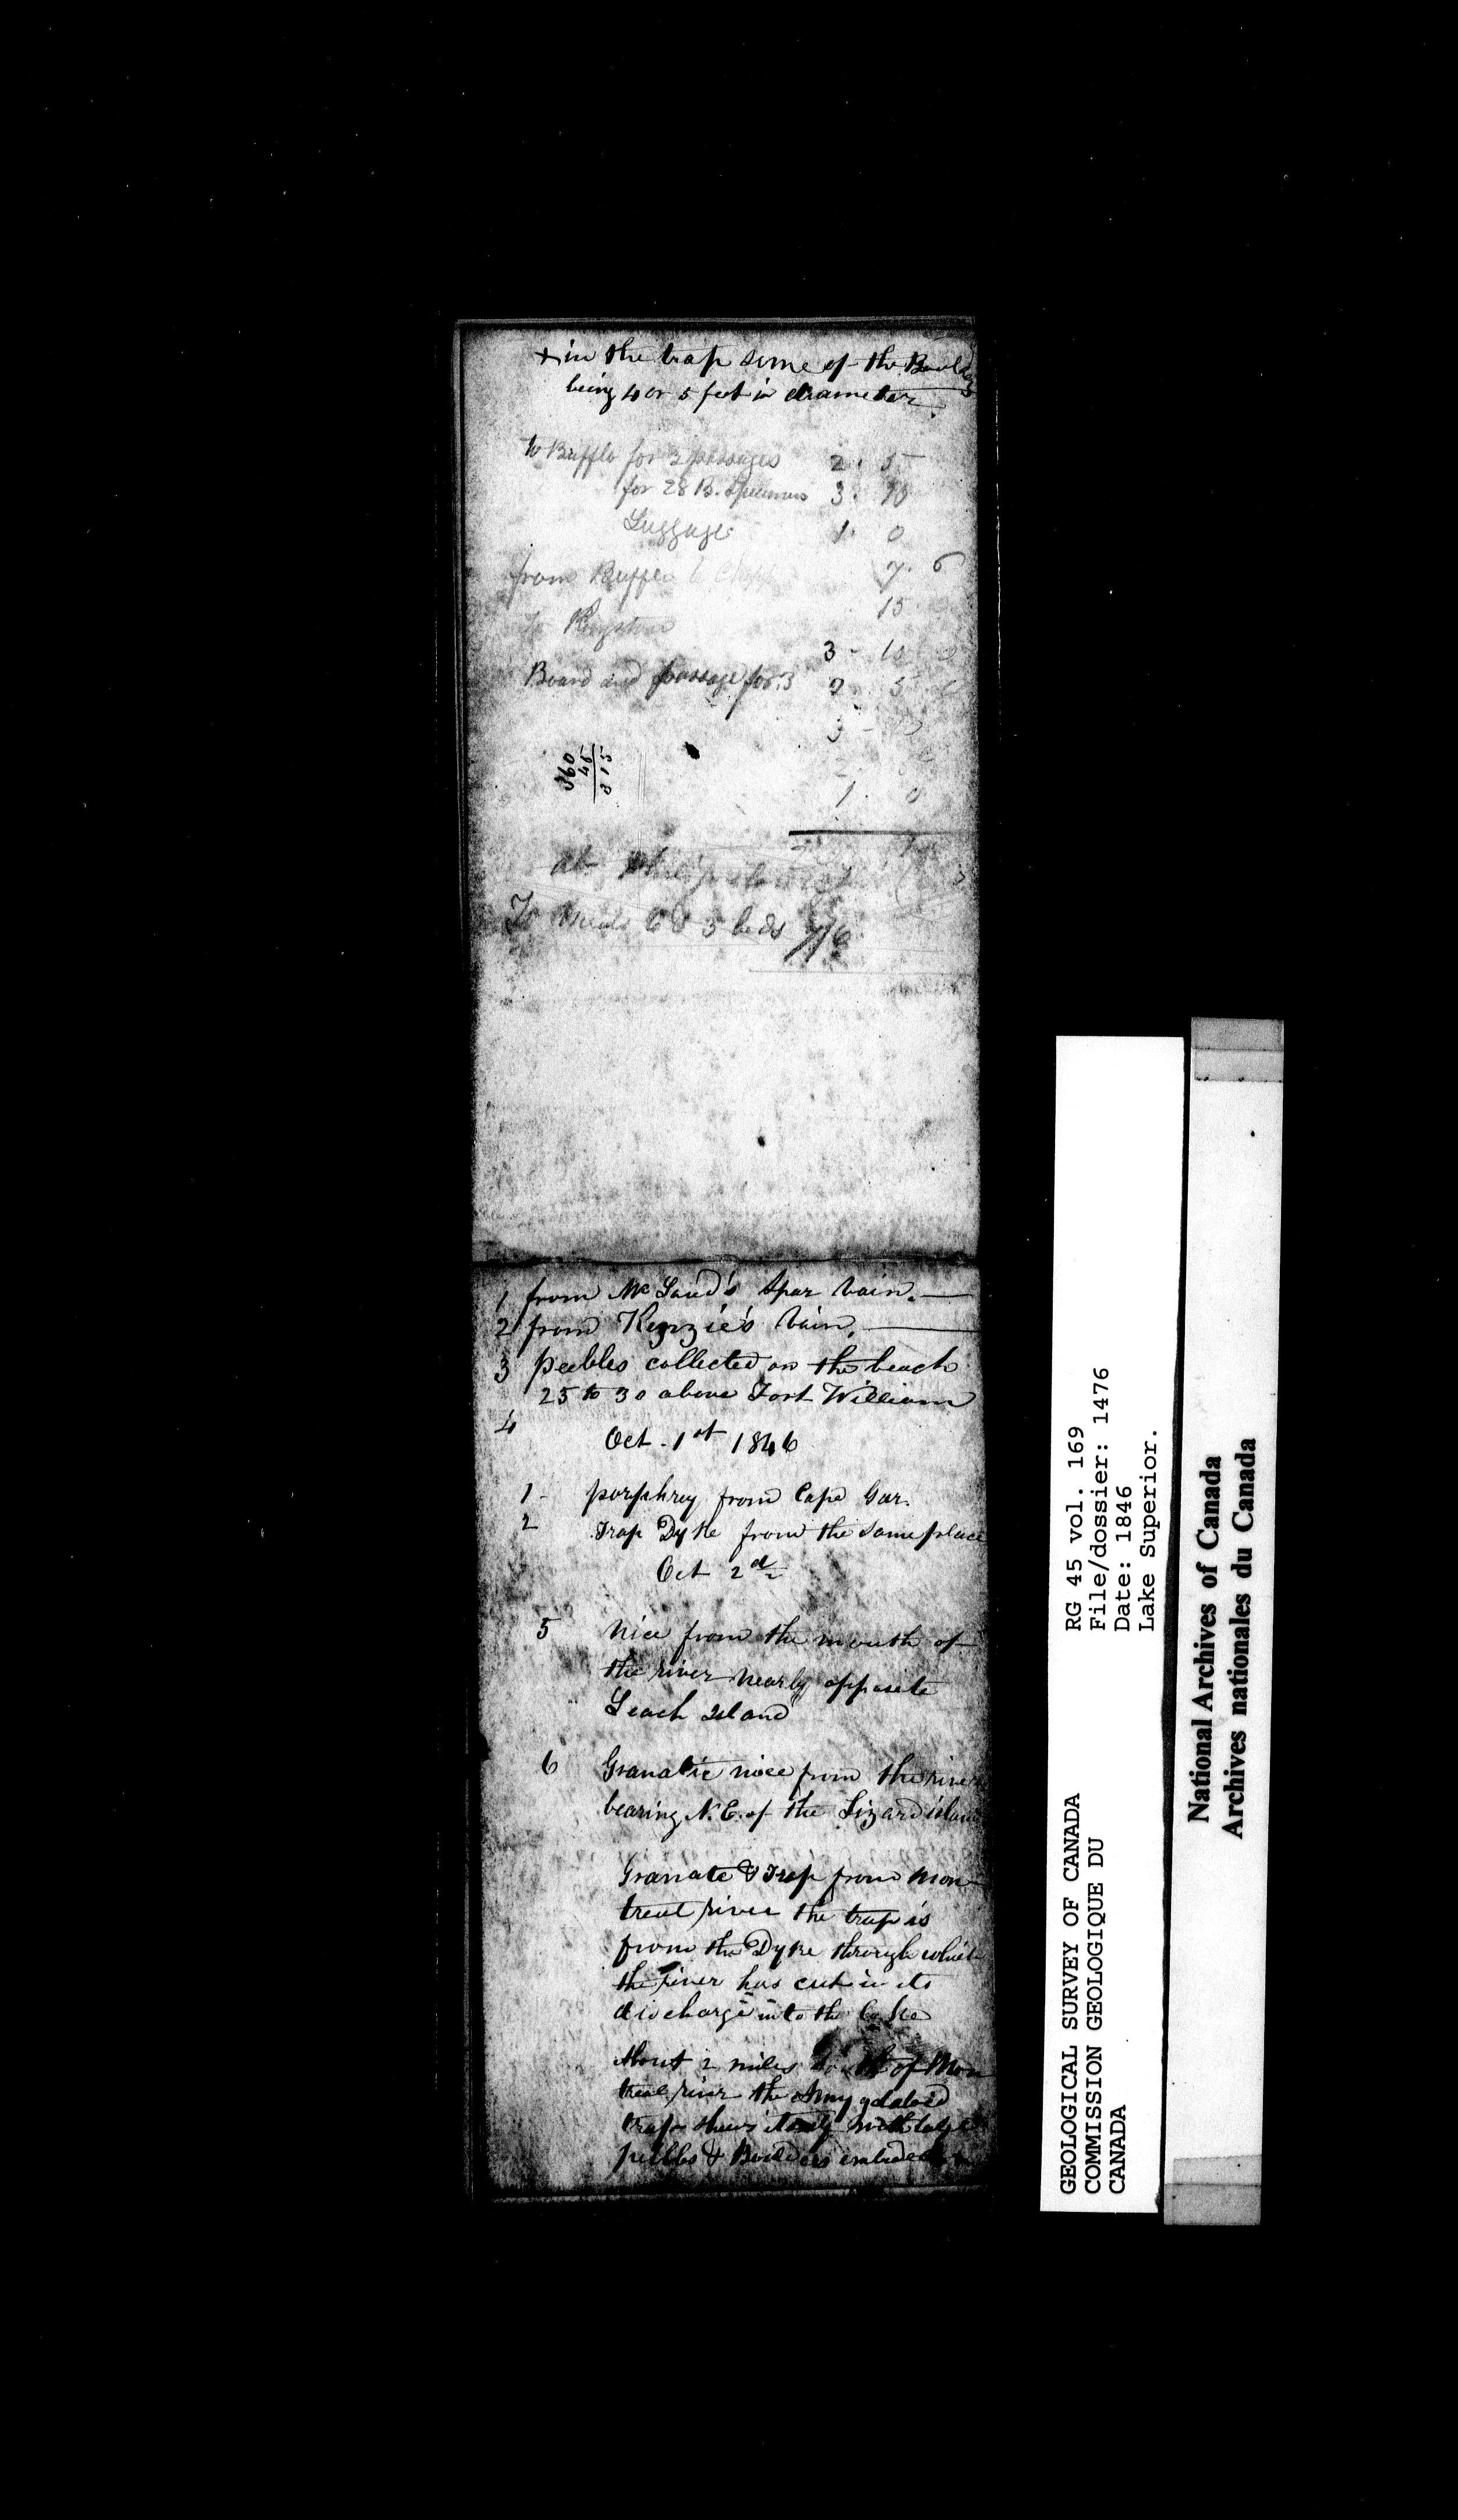 + in the trap some of the Boulders
being 4 or 5 feet in diameter.
to Bufflo for 3 passages 2. 5 -
for 28 B. Specimens 3. 10
Luggage 1. 0
from Buffлo to 7. 6
15
to Kingston
3 - 10 0
Board and passage for 3 2 5
3 -
1. 0
360
45
315
at
To Meals 6 & 3 beds 7/6
1 from Mc Laud's Spar vain. —
2 from Kenzie's vain. —
3 peebles collected on the beach
25 to 30 above Fort William
4
Oct. 1st 1846
1 - porphrey from Cape Gar.
2 Trap Dyke from the same place
Oct 2d
5 Nice from the mouth of
the river nearly opposite
Leach Island
6 Granatic nice from the river
bearing N.E. of the Lizard island
Granate & Trap from Mon-
treal river the trap is
from the Dyke through which
the river has cut in its
discharge into the Lake
About 2 miles of Mon
treal river the Amygdaloid
trap shews itself with large
pebbles & Boulders imbeded +
RG 45 vol. 169
File/dossier: 1476
Date: 1846
Lake Superior.
GEOLOGICAL SURVEY OF CANADA
COMMISSION GEOLOGIQUE DU
CANADA
National Archives of Canada
Archives nationales du Canada